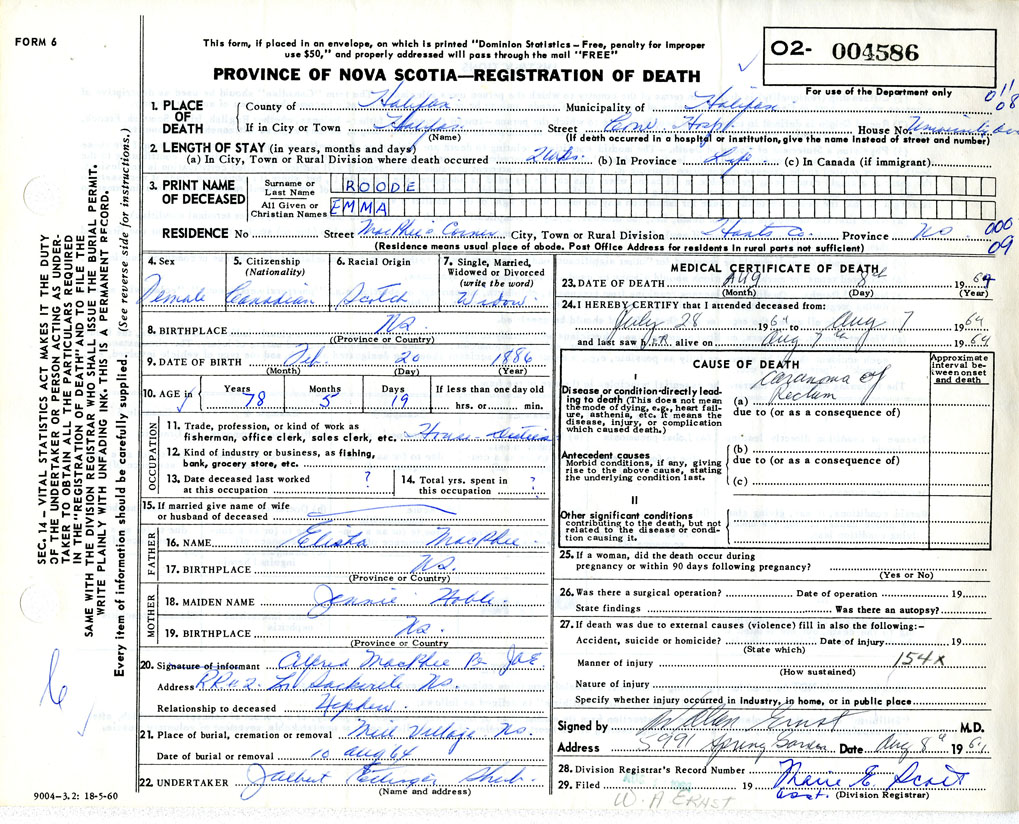 FORM 6
This form, if placed in an envelope, on which is printed "Dominion Statistics – Free, penalty for improper
use $50," and properly addressed will pass through the mail "FREE"
PROVINCE OF NOVA SCOTIA—REGISTRATION OF DEATH
O2- 004586
For use of the Department only
011
08
SEC. 14 – VITAL STATISTICS ACT MAKES IT THE DUTY
OF THE UNDERTAKER OR PERSON ACTING AS UNDER-
TAKER TO OBTAIN ALL THE PARTICULARS REQUIRED
IN THE "REGISTRATION OF DEATH" AND TO FILE THE
SAME WITH THE DIVISION REGISTRAR WHO SHALL ISSUE THE BURIAL PERMIT.
WRITE PLAINLY WITH UNFADING INK. THIS IS A PERMANENT RECORD.
Every item of information should be carefully supplied. (See reverse side for instructions.)
1. PLACE OF DEATH
County of Halifax Municipality of Halifax
If in City or Town Halifax Street Conv. Hosp. House No. University Ave
(Name) (If death occurred in a hospital or institution, give the name instead of street and number)
2. LENGTH OF STAY (in years, months and days)
(a) In City, Town or Rural Division where death occurred 2 wks. (b) In Province Life (c) In Canada (if immigrant)
3. PRINT NAME OF DECEASED
Surname or Last Name ROODE
All Given or Christian Names EMMA
RESIDENCE No Street MacPhee's Corner City, Town or Rural Division Hants Co. Province NS
000
09
(Residence means usual place of abode. Post Office Address for residents in rural parts not sufficient)
4. Sex Female
5. Citizenship (Nationality) Canadian
6. Racial Origin Scotch
7. Single, Married, Widowed or Divorced (write the word) Widow
8. BIRTHPLACE NS.
(Province or Country)
9. DATE OF BIRTH Feb. 20 1886
(Month) (Day) (Year)
10. AGE in Years 78 Months 5 Days 19 If less than one day old hrs. or min.
OCCUPATION
11. Trade, profession, or kind of work as
fisherman, office clerk, sales clerk, etc. House duties
12. Kind of industry or business, as fishing,
bank, grocery store, etc.
13. Date deceased last worked at this occupation ?
14. Total yrs. spent in this occupation ?
15. If married give name of wife
or husband of deceased
FATHER
16. NAME Elisha MacPhee
17. BIRTHPLACE NS.
(Province or Country)
MOTHER
18. MAIDEN NAME Jennie Noble
19. BIRTHPLACE NS.
(Province or Country
20. Signature of informant Alfred MacPhee Per J.A.E
Address RR#2. Lr Sackville NS.
Relationship to deceased Nephew
21. Place of burial, cremation or removal Mill Village NS.
Date of burial or removal 10 Aug 64
22. UNDERTAKER Jalbert Ettinger Shub.
(Name and address)
9004-3.2: 18-5-60
MEDICAL CERTIFICATE OF DEATH
23. DATE OF DEATH Aug 8th 1964
(Month) (Day) (Year)
24. I HEREBY CERTIFY that I attended deceased from:
July 28 1964 to Aug 7 1964
and last saw her alive on Aug 7th 1964
CAUSE OF DEATH
Approximate interval between onset and death
I
Disease or condition directly lead-
ing to death (This does not mean
the mode of dying, e.g., heart fail-
ure, asthenia, etc. It means the
disease, injury, or complication
which caused death.)
(a) Carcinoma of Rectum
due to (or as a consequence of)
Antecedent causes
Morbid conditions, if any, giving
rise to the above cause, stating
the underlying condition last.
(b)
due to (or as a consequence of)
(c)
II
Other significant conditions
contributing to the death, but not
related to the disease or condi-
tion causing it.
25. If a woman, did the death occur during
pregnancy or within 90 days following pregnancy?
(Yes or No)
26. Was there a surgical operation? Date of operation 19
State findings Was there an autopsy?
27. If death was due to external causes (violence) fill in also the following:–
Accident, suicide or homicide? Date of injury 19
(State which)
Manner of injury 154X
(How sustained)
Nature of injury
Specify whether injury occurred in industry, in home, or in public place
Signed by W Allen Ernst M.D.
Address 5991 Spring Garden Date Aug 8th 1964
28. Division Registrar's Record Number
29. Filed 19 Marie E Scott
W. A ERNST
asst. (Division Registrar)